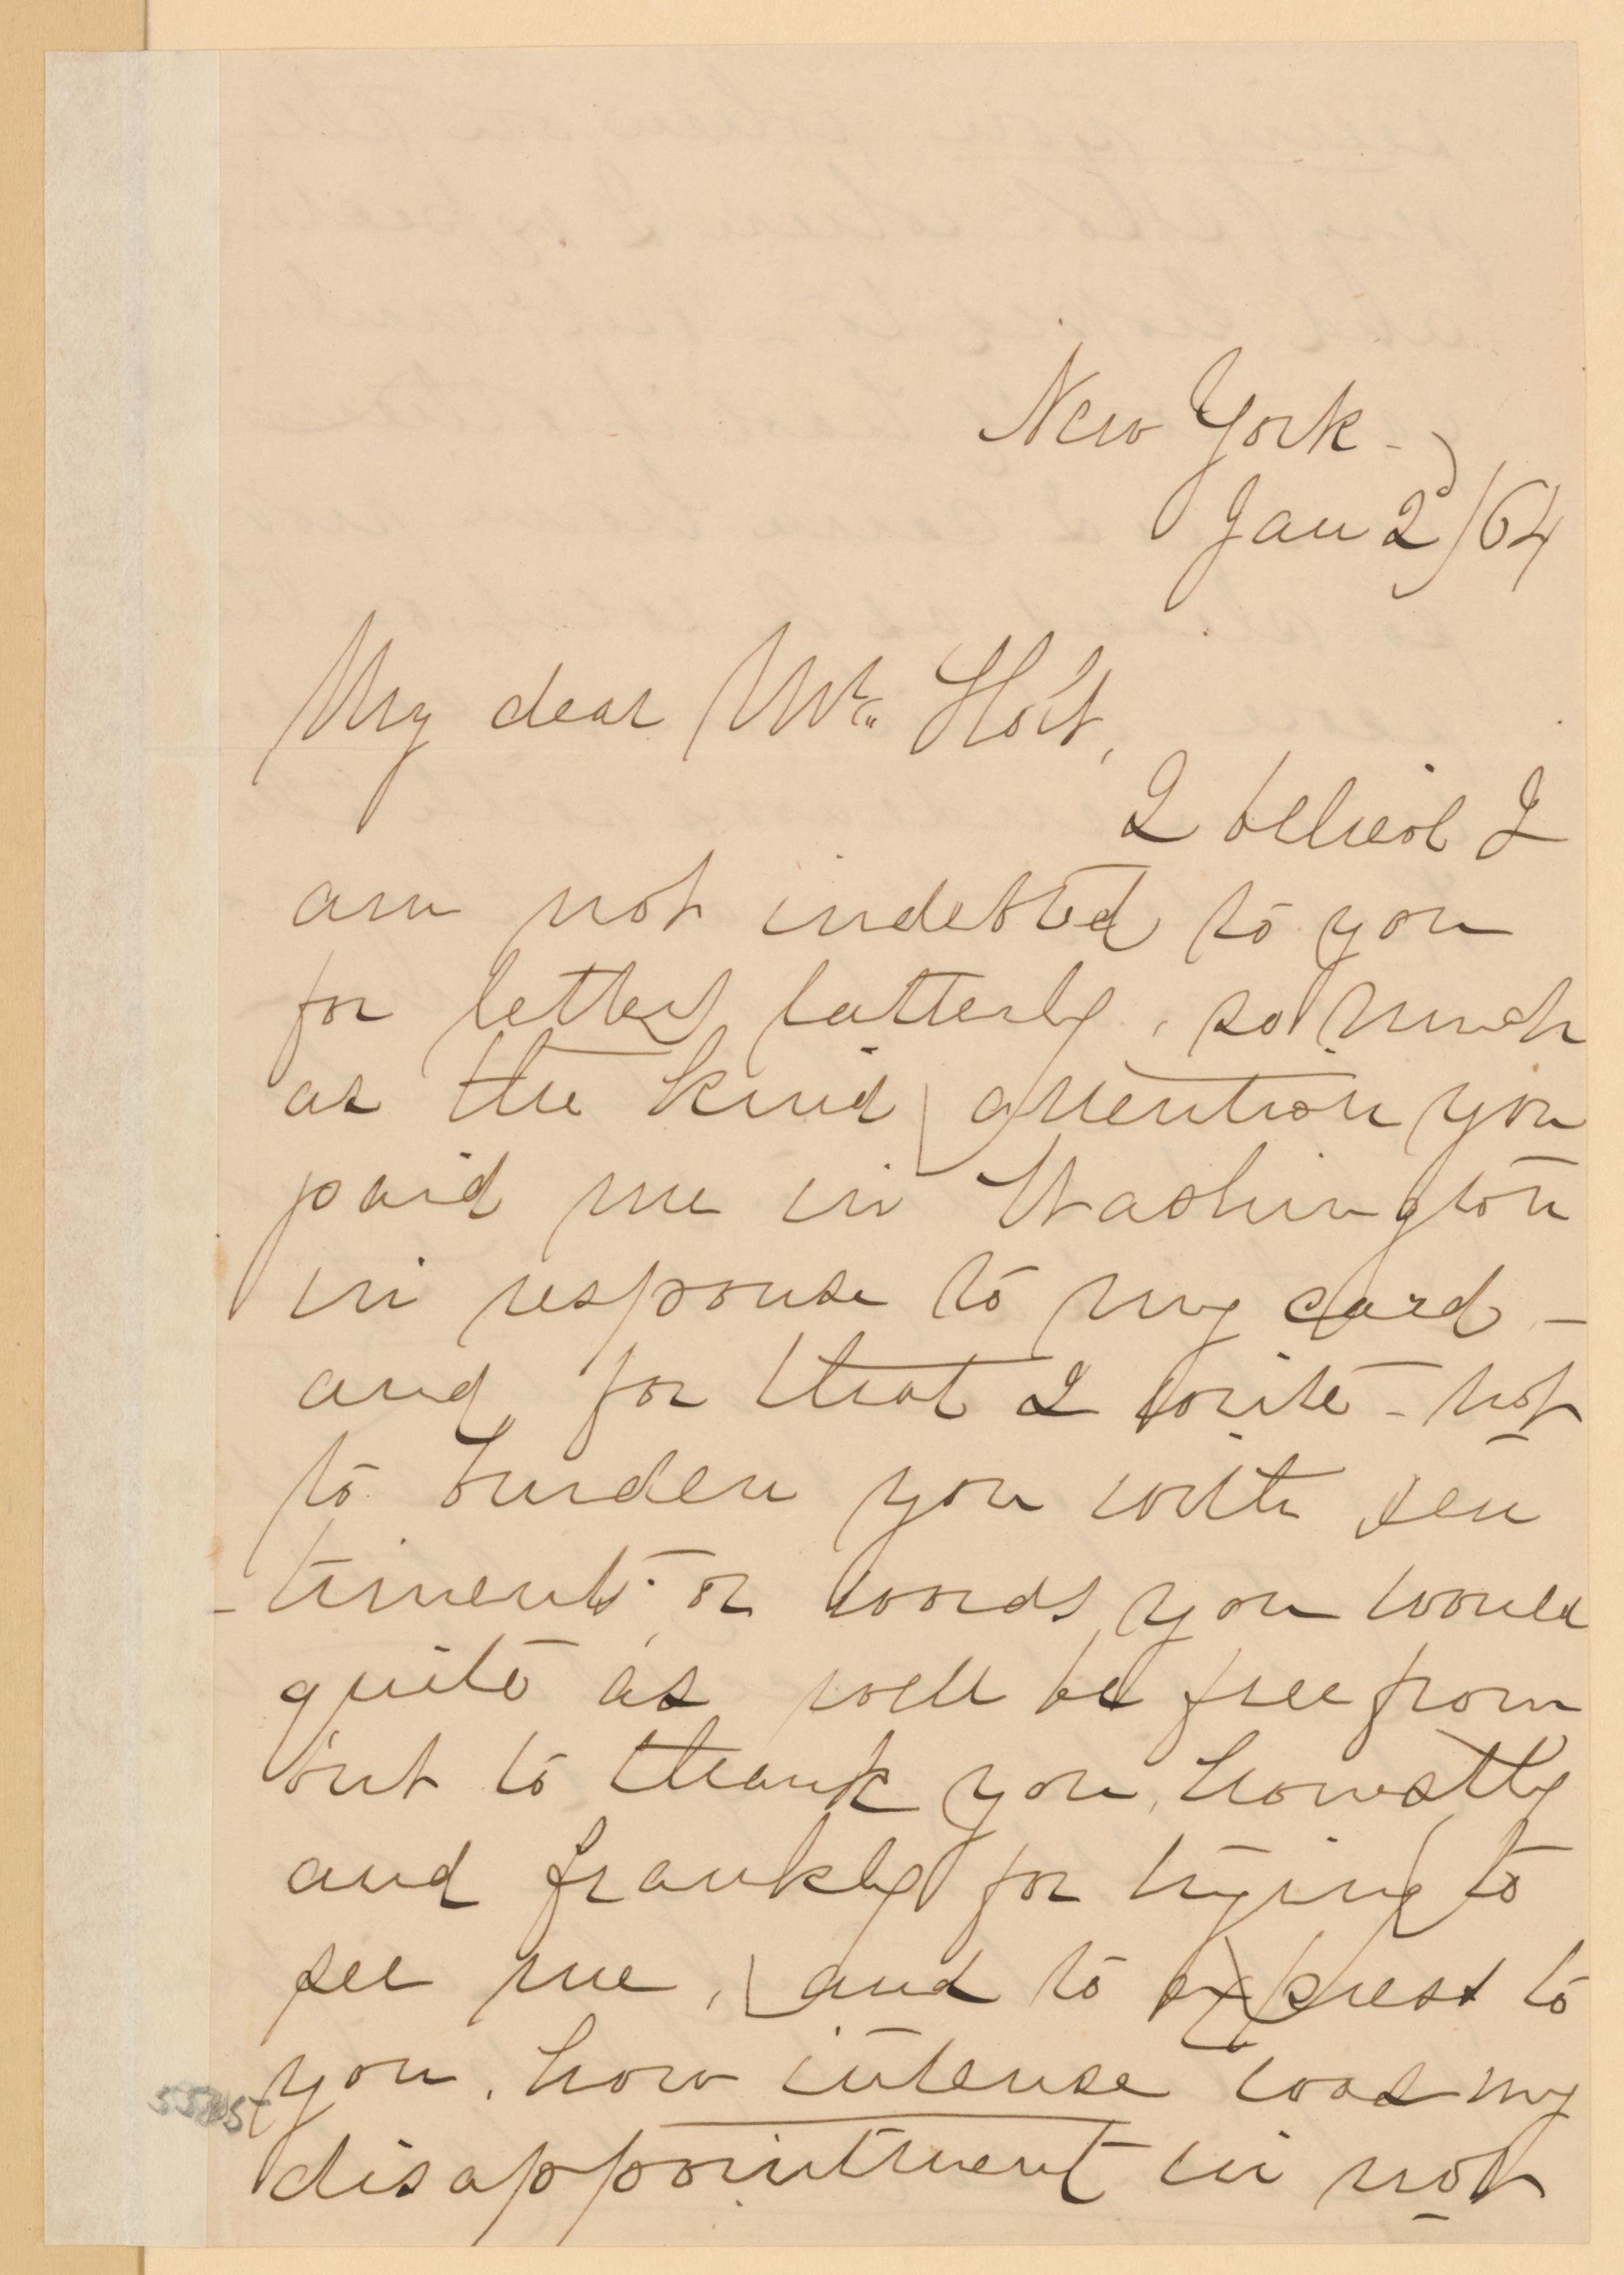 New York -
Jan 2d/64
My dear Mr. Holt,
I believe I
am not indebted to you
for letters latterly, so much
as the kind attention you
paid me in Washington
in response to my card -
and for that I write - not
to burden you with sen
-timent, or words you would
quite as well be free from
but to thank you, honestly
and frankly for trying to
see me, and to express to
you, how intense was my
disappointment in not